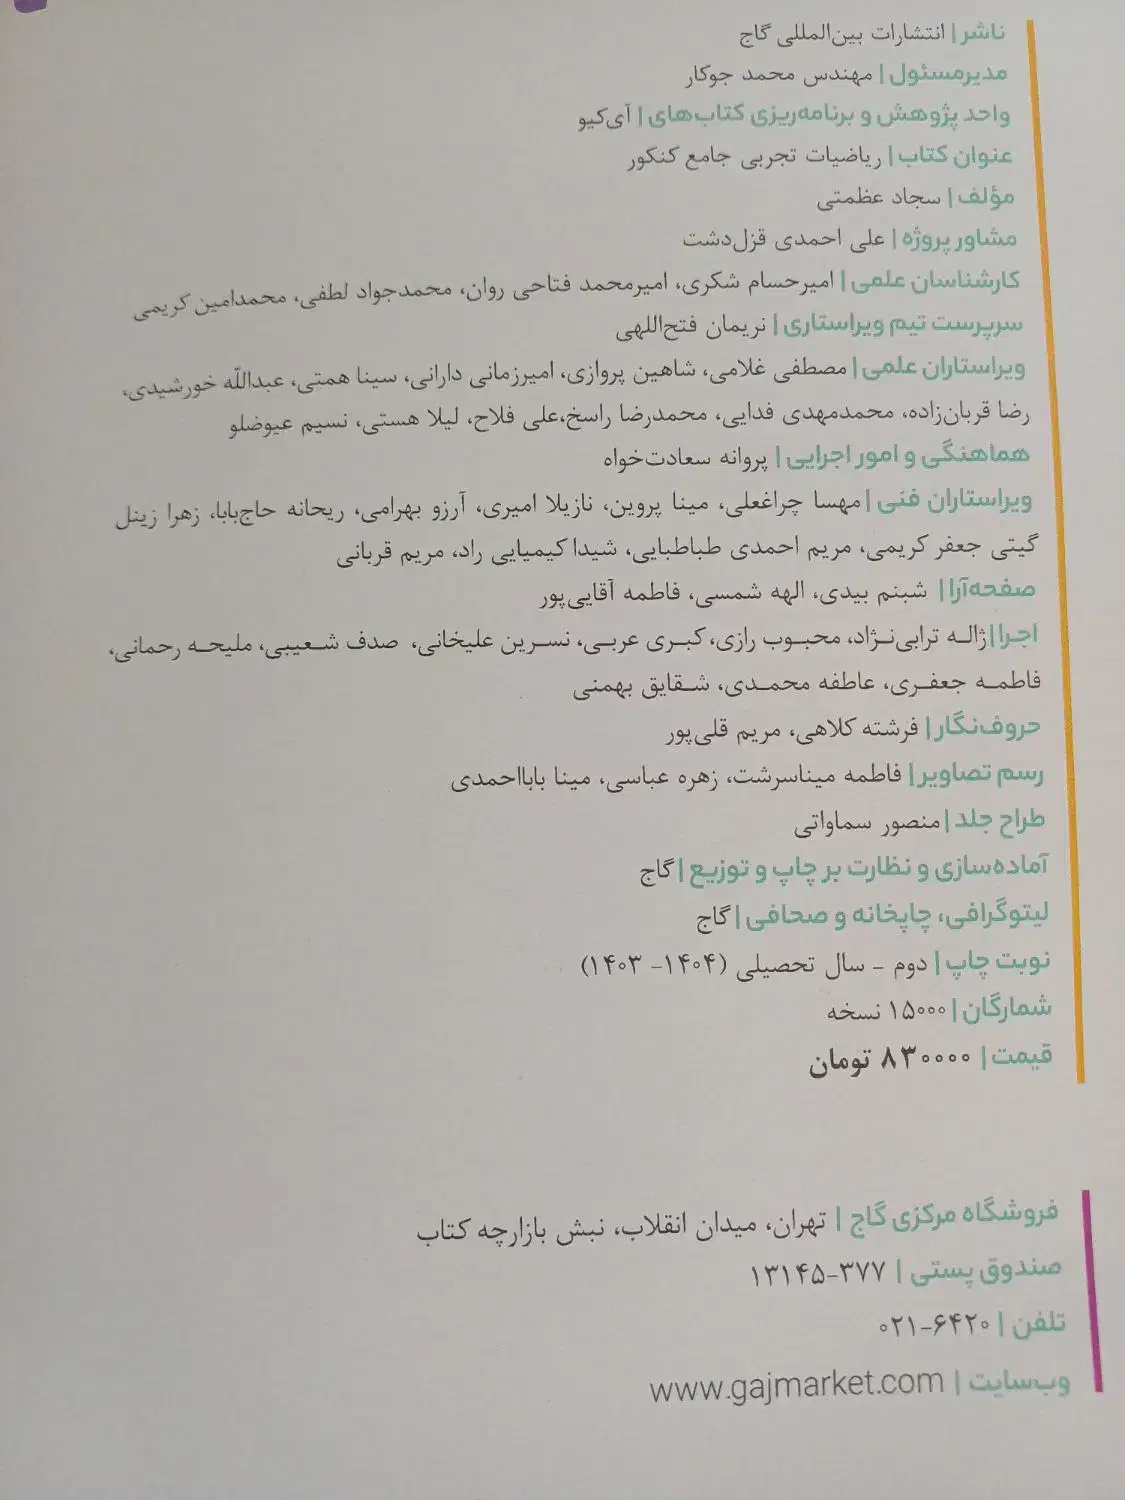 ناشر | انتشارات بین‌المللی گاج
مدیرمسئول | مهندس محمد جوکار
واحد پژوهش و برنامه‌ریزی کتاب‌های | آی‌کیو
عنوان کتاب | ریاضیات تجربی جامع کنکور
مؤلف | سجاد عظمتی
مشاور پروژه | علی احمدی قزل‌دشت
کارشناسان علمی | امیرحسام شکری، امیرمحمد فتاحی روان، محمدجواد لطفی، محمدامین کریمی
سرپرست تیم ویراستاری | نریمان فتح‌اللهی
ویراستاران علمی | مصطفی غلامی، شاهین پروازی، امیرزمانی دارانی، سینا همتی، عبداللّه خورشیدی،
رضا قربان‌زاده، محمدمهدی فدایی، محمدرضا راسخ،علی فلاح، لیلا هستی، نسیم عیوضلو
هماهنگی و امور اجرایی | پروانه سعادت‌خواه
ویراستاران فنی | مهسا چراغعلی، مینا پروین، نازیلا امیری، آرزو بهرامی، ریحانه حاج‌بابا، زهرا زینل
گیتی جعفر کریمی، مریم احمدی طباطبایی، شیدا کیمیایی راد، مریم قربانی
صفحه‌آرا | شبنم بیدی، الهه شمسی، فاطمه آقایی‌پور
اجرا | ژاله ترابی‌نژاد، محبوب رازی، کبری عربی، نسرین علیخانی، صدف شعیبی، ملیحه رحمانی،
فاطمه جعفری، عاطفه محمدی، شقایق بهمنی
حروف‌نگار | فرشته کلاهی، مریم قلی‌پور
رسم تصاویر | فاطمه میناسرشت، زهره عباسی، مینا بابااحمدی
طراح جلد | منصور سماواتی
آماده‌سازی و نظارت بر چاپ و توزیع | گاج
لیتوگرافی، چاپخانه و صحافی | گاج
نوبت چاپ | دوم - سال تحصیلی (۱۴۰۴- ۱۴۰۳)
شمارگان | ۱۵۰۰۰ نسخه
قیمت | ۸۳۰۰۰۰ تومان
فروشگاه مرکزی گاج | تهران، میدان انقلاب، نبش بازارچه کتاب
صندوق پستی | ۱۳۱۴۵-۳۷۷
تلفن | ۰۲۱-۶۴۲۰
وب‌سایت | www.gajmarket.com